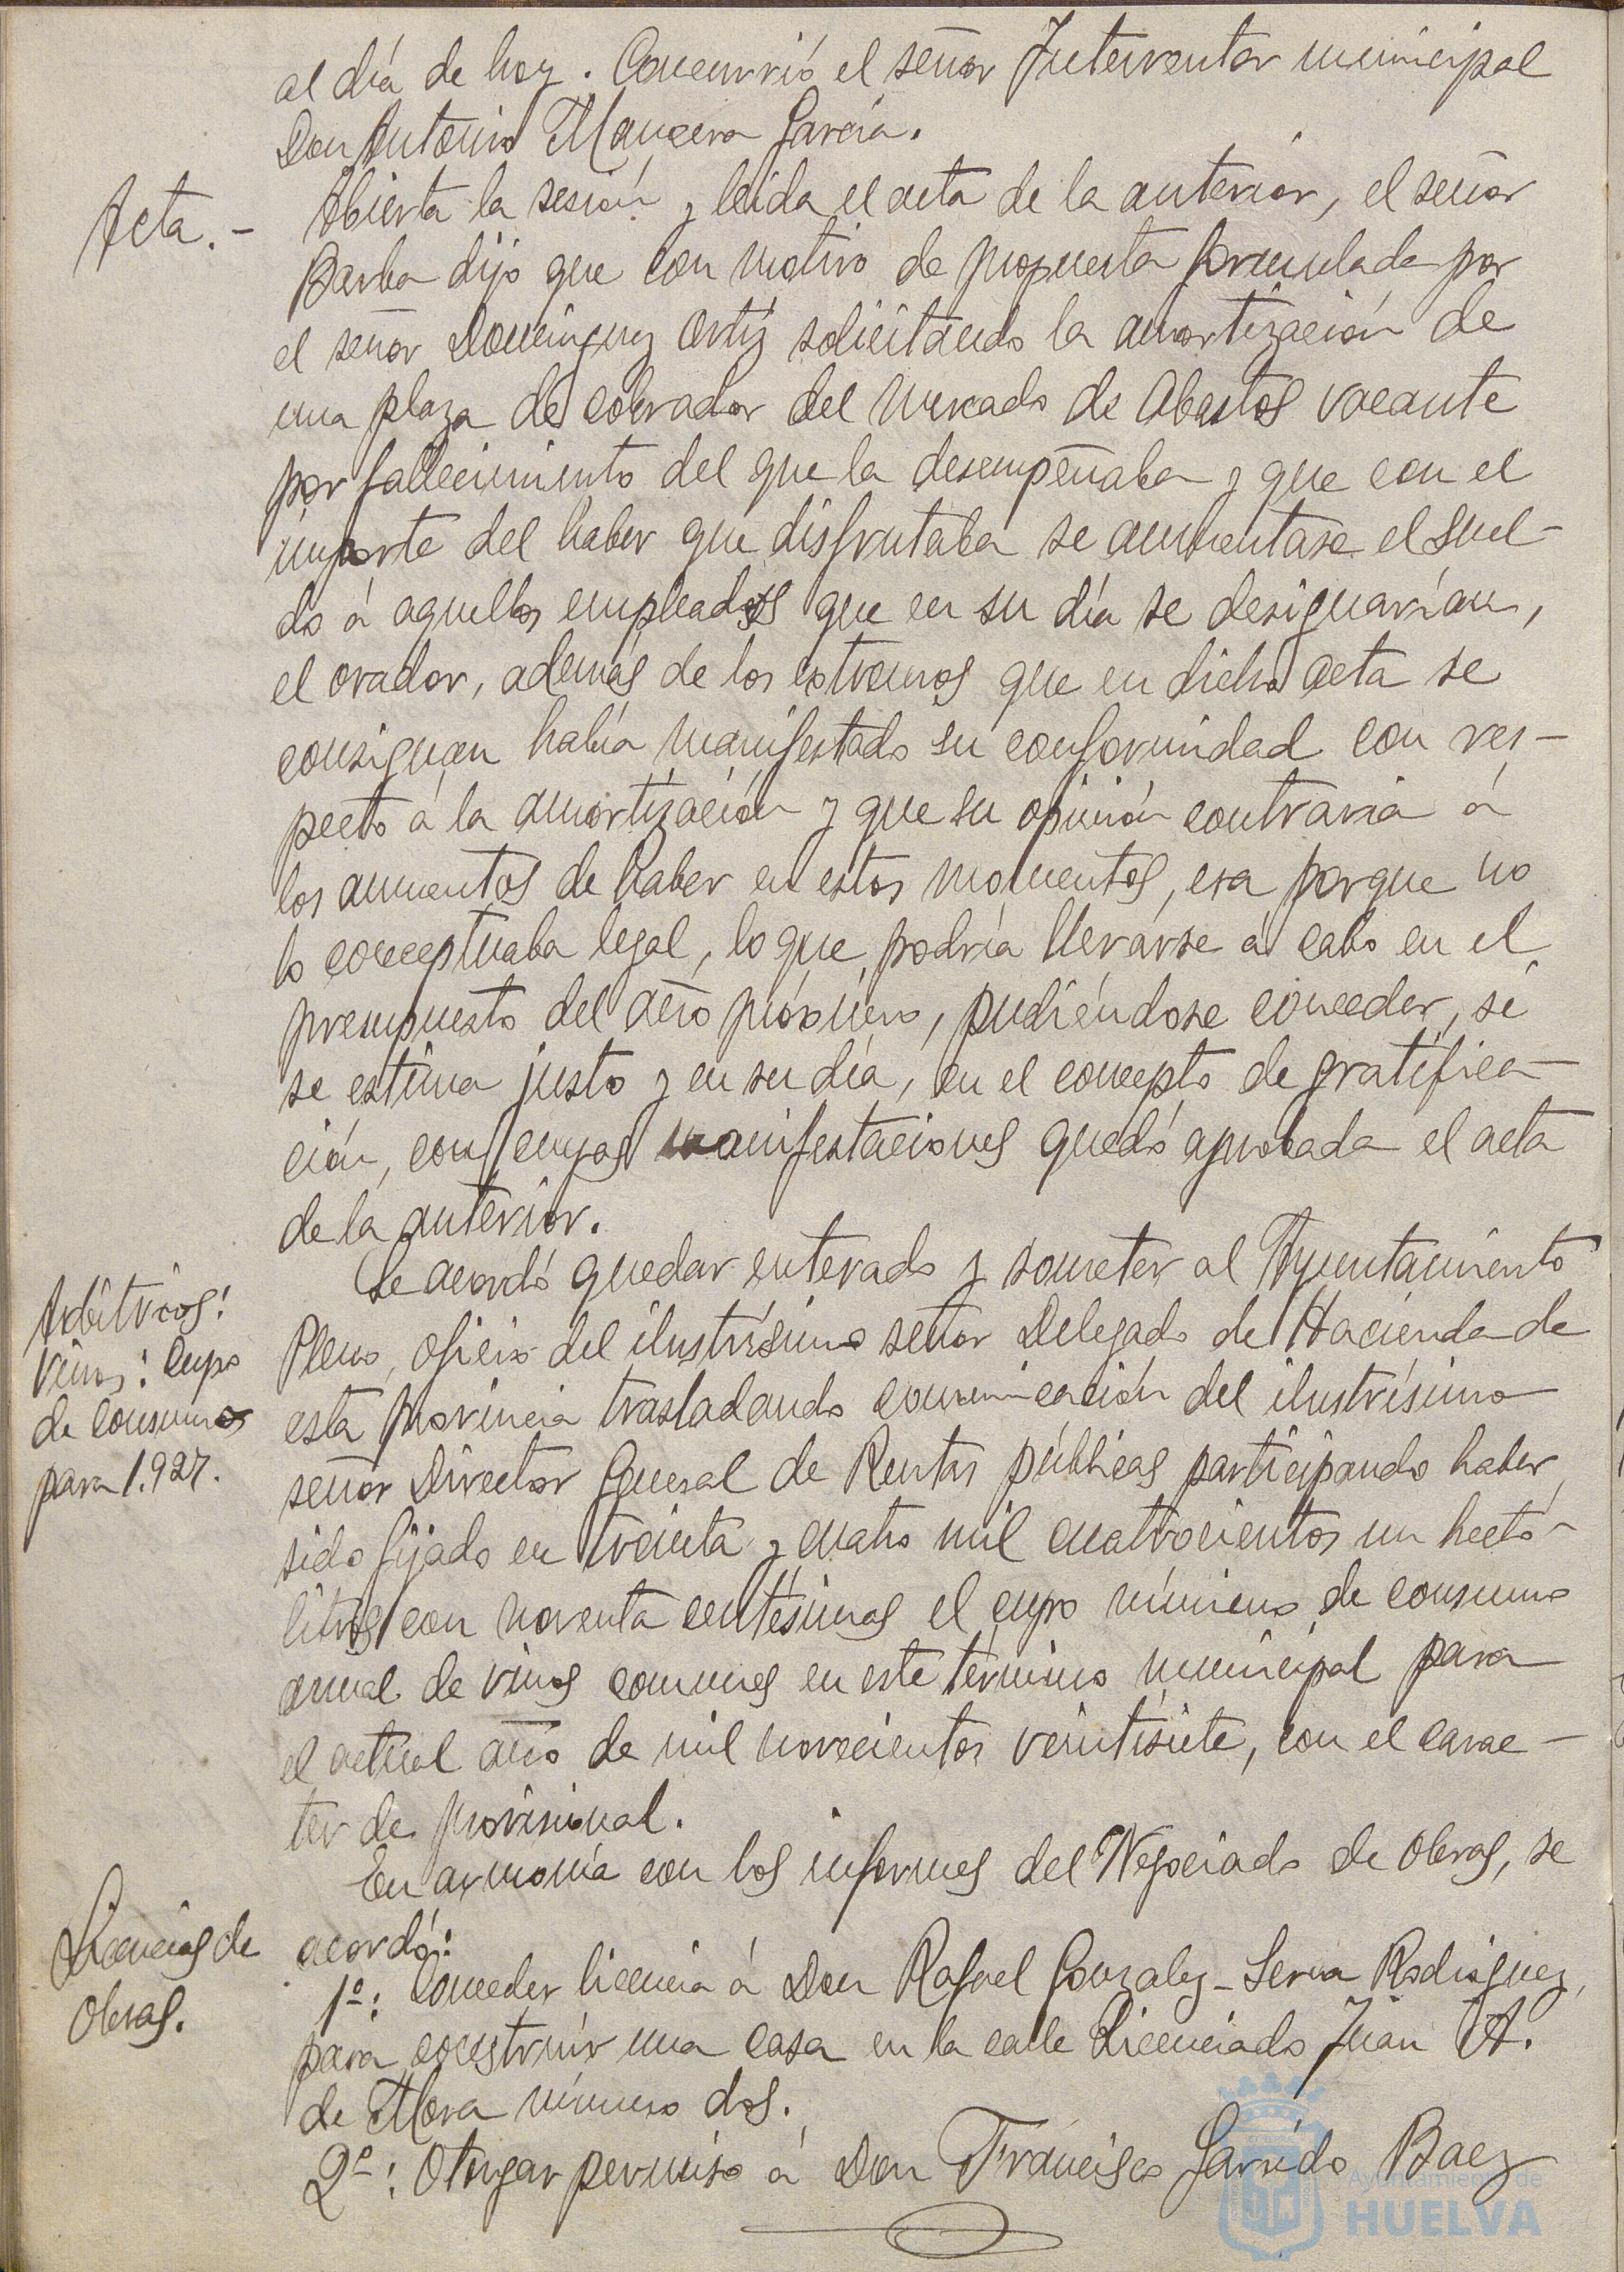 al día de hoy. Concurrió el señor Interventor municipal
Don Antonio Mancera García.
Acta.-
Abierta la sesión y leída el acta de la anterior, el señor
Barba dijo que con motivo de propuesta formulada por
el señor Dominguez Ortiz solicitando la amortización de
una plaza de cobrador del Mercado de Abastos vacante
por fallecimiento del que la desempeñaba y que con el
importe del haber que disfrutaba se aumentase el suel-
do á aquellos empleados que en su día se designarían,
el orador, además de los extremos que en dicha acta se
consignan había manifestado su conformidad con res-
pecto á la amortización y que su opinión contraria á
los aumentos de haber en estos momentos, era porque no
lo conceptuaba legal, lo que podría llevarse á cabo en el
presupuesto del año próximo, pudiéndose conceder, si
se estima justo y en su día, en el concepto de gratifica-
ción, con cuyas manifestaciones quedó aprobada el acta
de la anterior.
Arbitrios:
Vinos: Cupo
de consumos
para 1.927.
Se acordó quedar enterado y someter al Ayuntamiento
Pleno, oficio del ilustrísimo señor Delegado de Hacienda de
esta provincia trasladando comunicación del ilustrísimo
señor Director General de Rentas públicas participando haber
sido fijado en treinta y cuatro mil cuatrocientos un hectó-
litros con noventa centésimas el cupo mínimo de consumo
anual de vinos comunes en este término municipal para
el actual año de mil novecientos veintisiete, con el carac-
ter de provisional.
Licencias de
Obras.
En armonía con los informes del Negociado de Obras, se
acordó:
1º: Conceder licencia á Don Rafael Gonzalez-Serna Rodriguez,
para construir una casa en la calle Licenciado Juan A.
de Mora número dos.
2º: Otorgar permiso á Don Francisco Garrido Baez
Ayuntamiento de
HUELVA